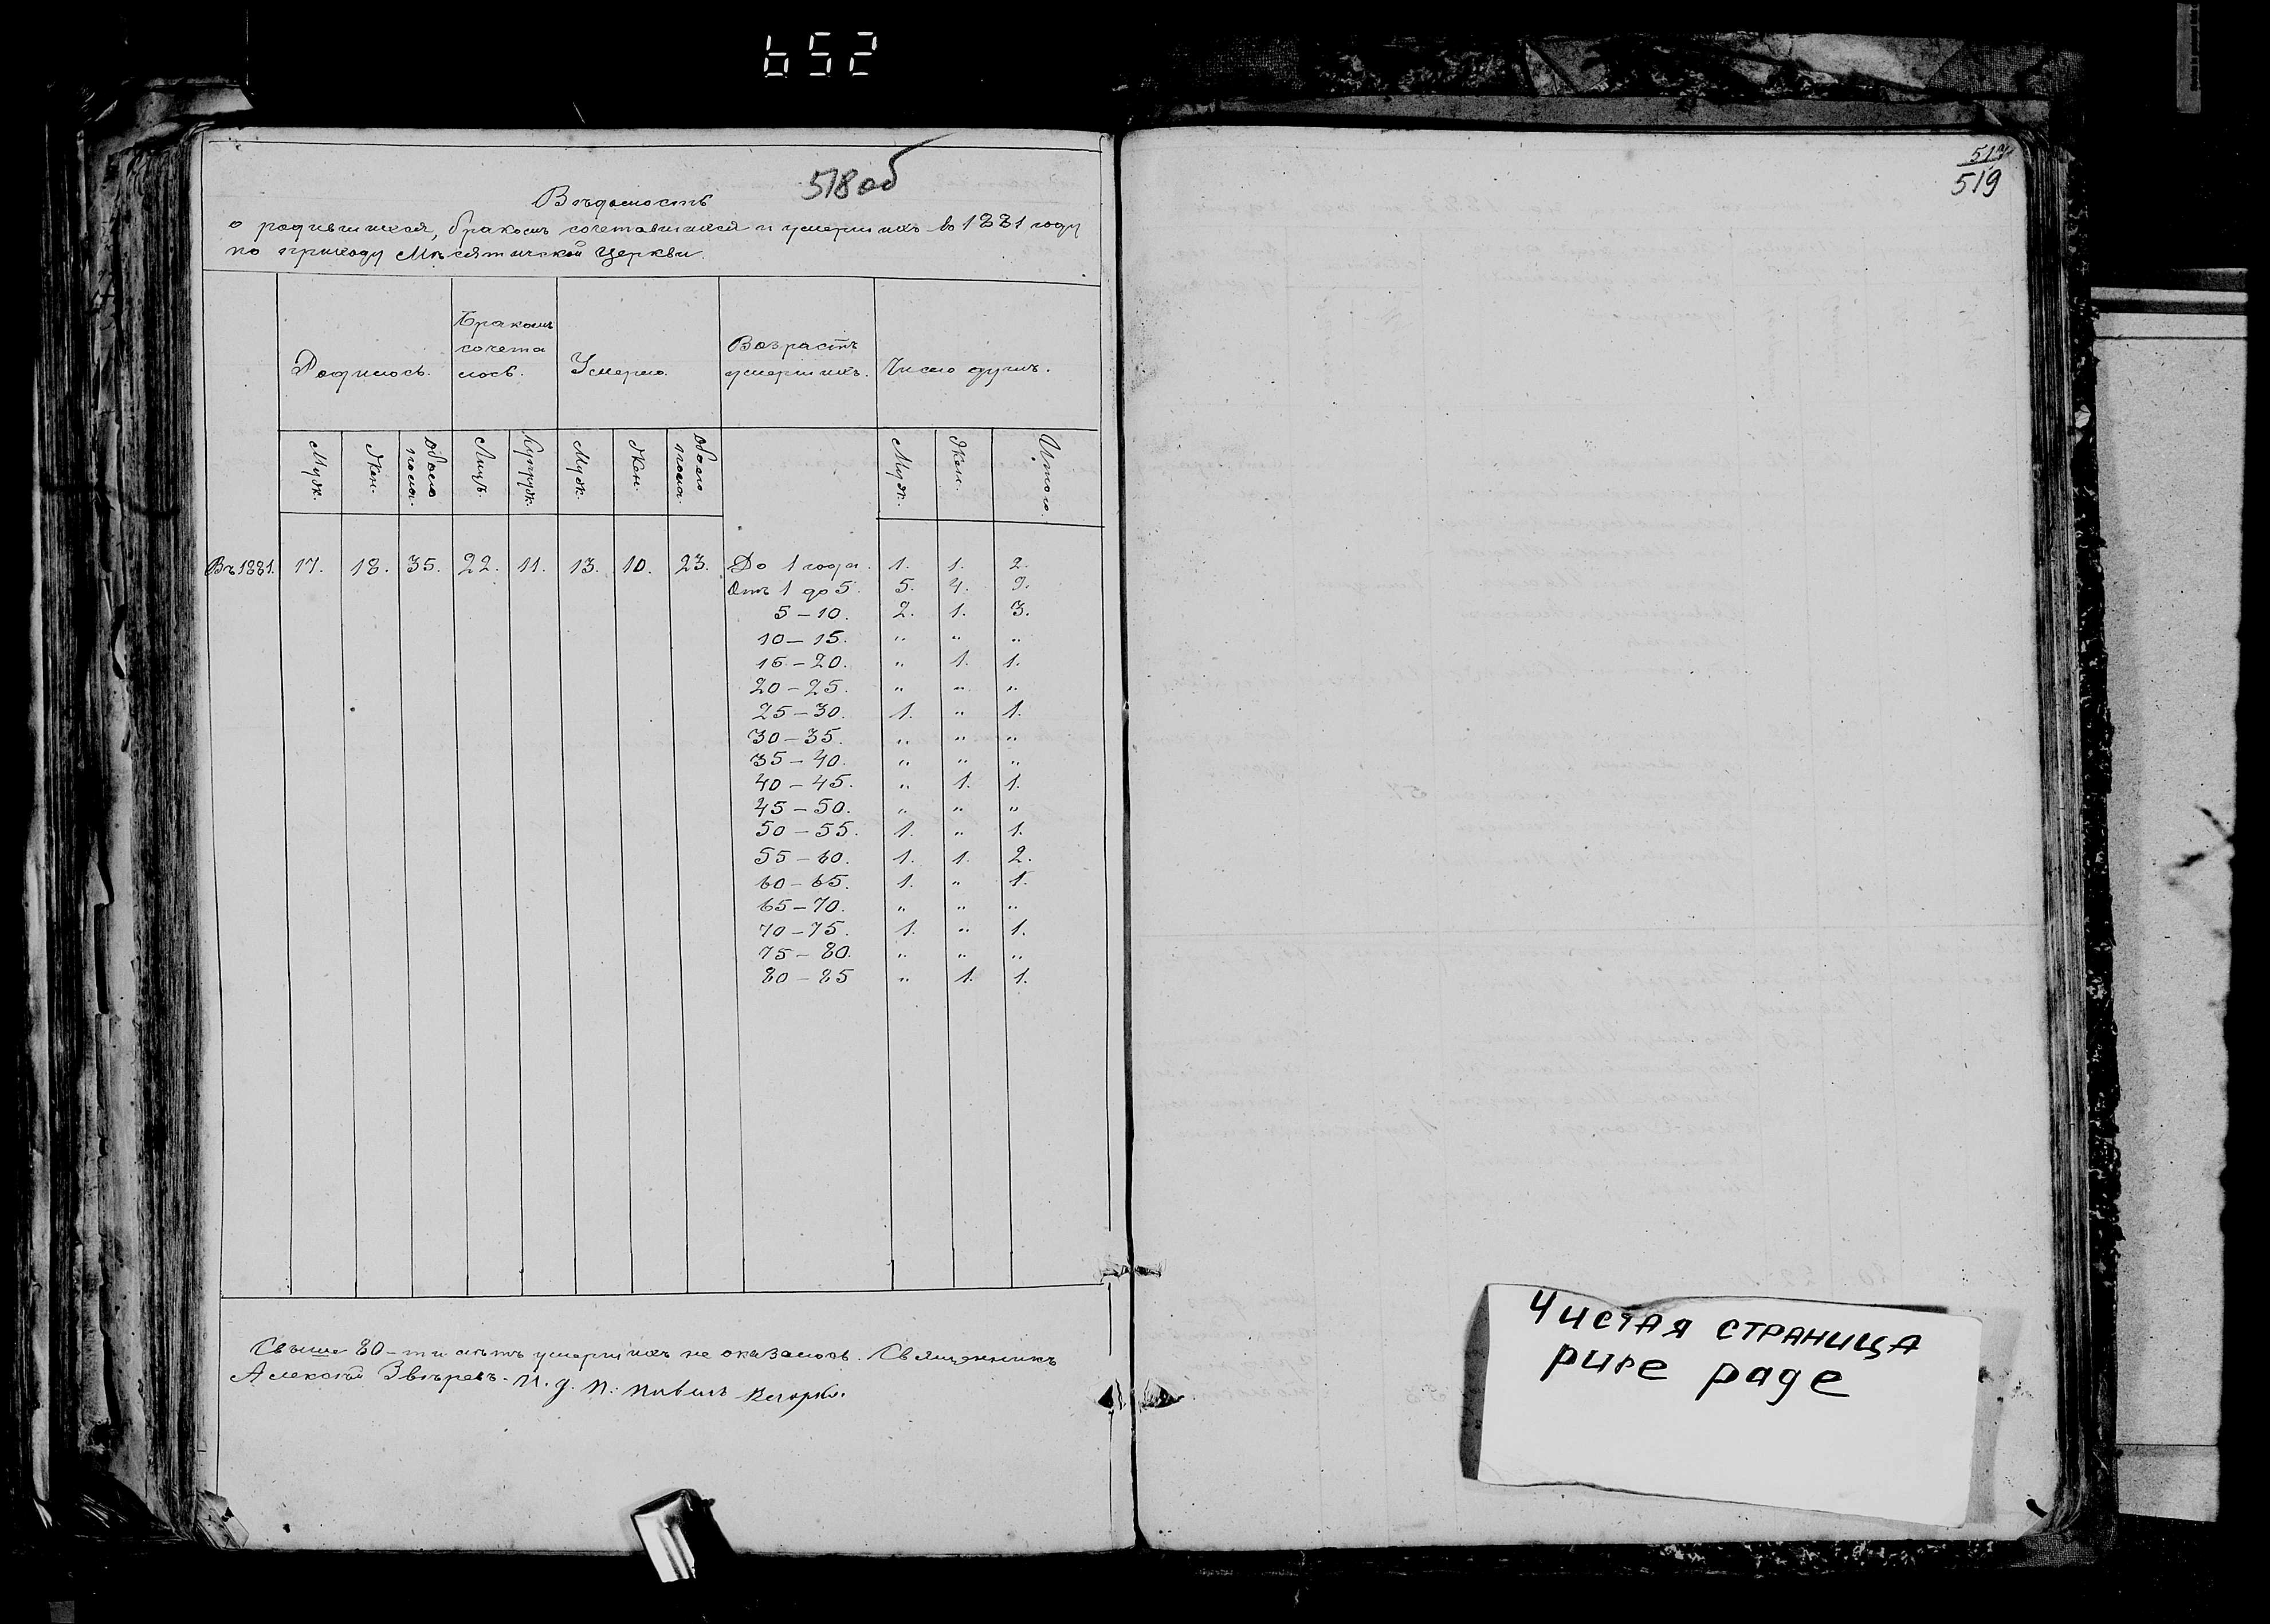 652
518 об
Вѣдомость
о родившихся, бракомъ сочетавшихся и умершихъ во 1881 году
по приходу Мнсятичской Церкви.
Родилось. Бракомъ сочета лось. Умерло. Возрастъ умершихъ. Число душъ.
Муж. Жен. Обоего пола. Лицъ. Супруж. Муж. Жен. Обоего пола. Муж. Жен. Итого.
Въ 1881. 17. 18. 35. 22. 11. 13. 10. 23. До 1 года. 1. 1. 2.
Отъ 1 до 5. 5. 4. 9.
5 – 10. 2. 1. 3.
10 – 15. „ „ „
15 – 20. „ 1. 1.
20 – 25. „ „ „
25 – 30. 1. „ 1.
30 – 35. „ „ „
35 – 40. „ „ „
40 – 45. „ 1. 1.
45 – 50. „ „ „
50 – 55. 1. „ 1.
55 – 60. 1. 1. 2.
60 – 65. 1. „ 1.
65 – 70. „ „ „
70 – 75. 1. „ 1.
75 – 80. „ „ „
80 – 85 „ 1. 1.
Свыше 80-ти лѣтъ умершихъ не оказалось. Священникъ
Алексѣй Звѣревъ. И. д. п.
519
Чистая страница
pure page